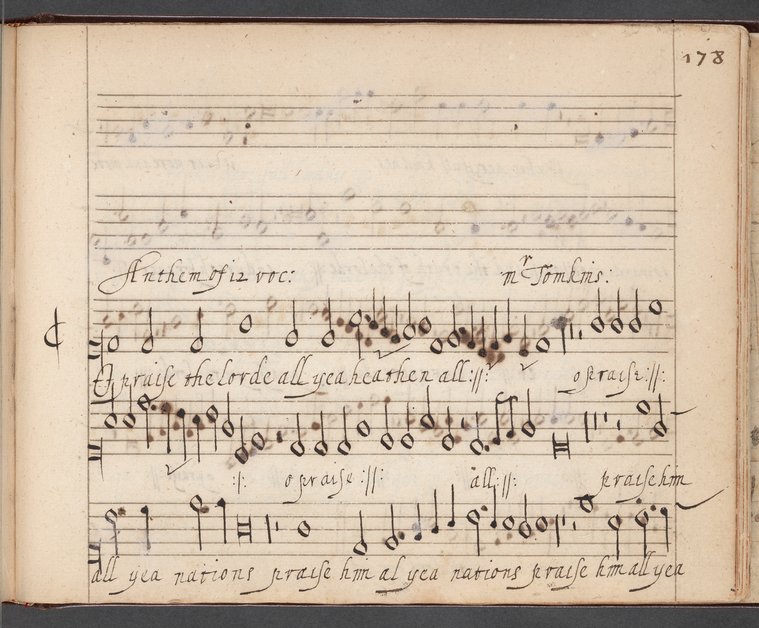 178
Anthem of 12 voc: mr Tomkins.
O praise the lorde all yea heathen all :||: o praise :||:
:|: o praise :||: all :||: praise him
all yea nations praise him al yea nations praise him all yea